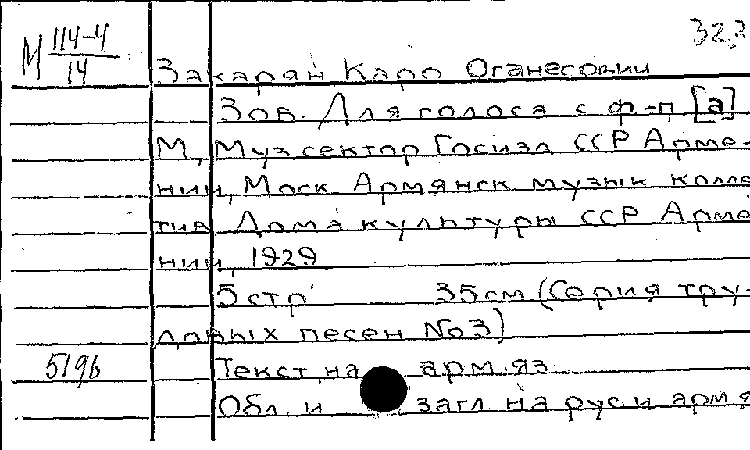 М 114-4/14
32,3
Закарян Каро Оганесович
Зов. Для голоса с ф.-п. [а]
М., Музсектор Госиза ССР Арме-
нии, Моск. Армянск. музык. колле
тив Дома культуры ССР Арме
нии, 1929
5 стр. 35 см (Серия тру-
довых песен №3)
5196 Текст на арм. яз.
Обл. и загл. на рус. и арм. я